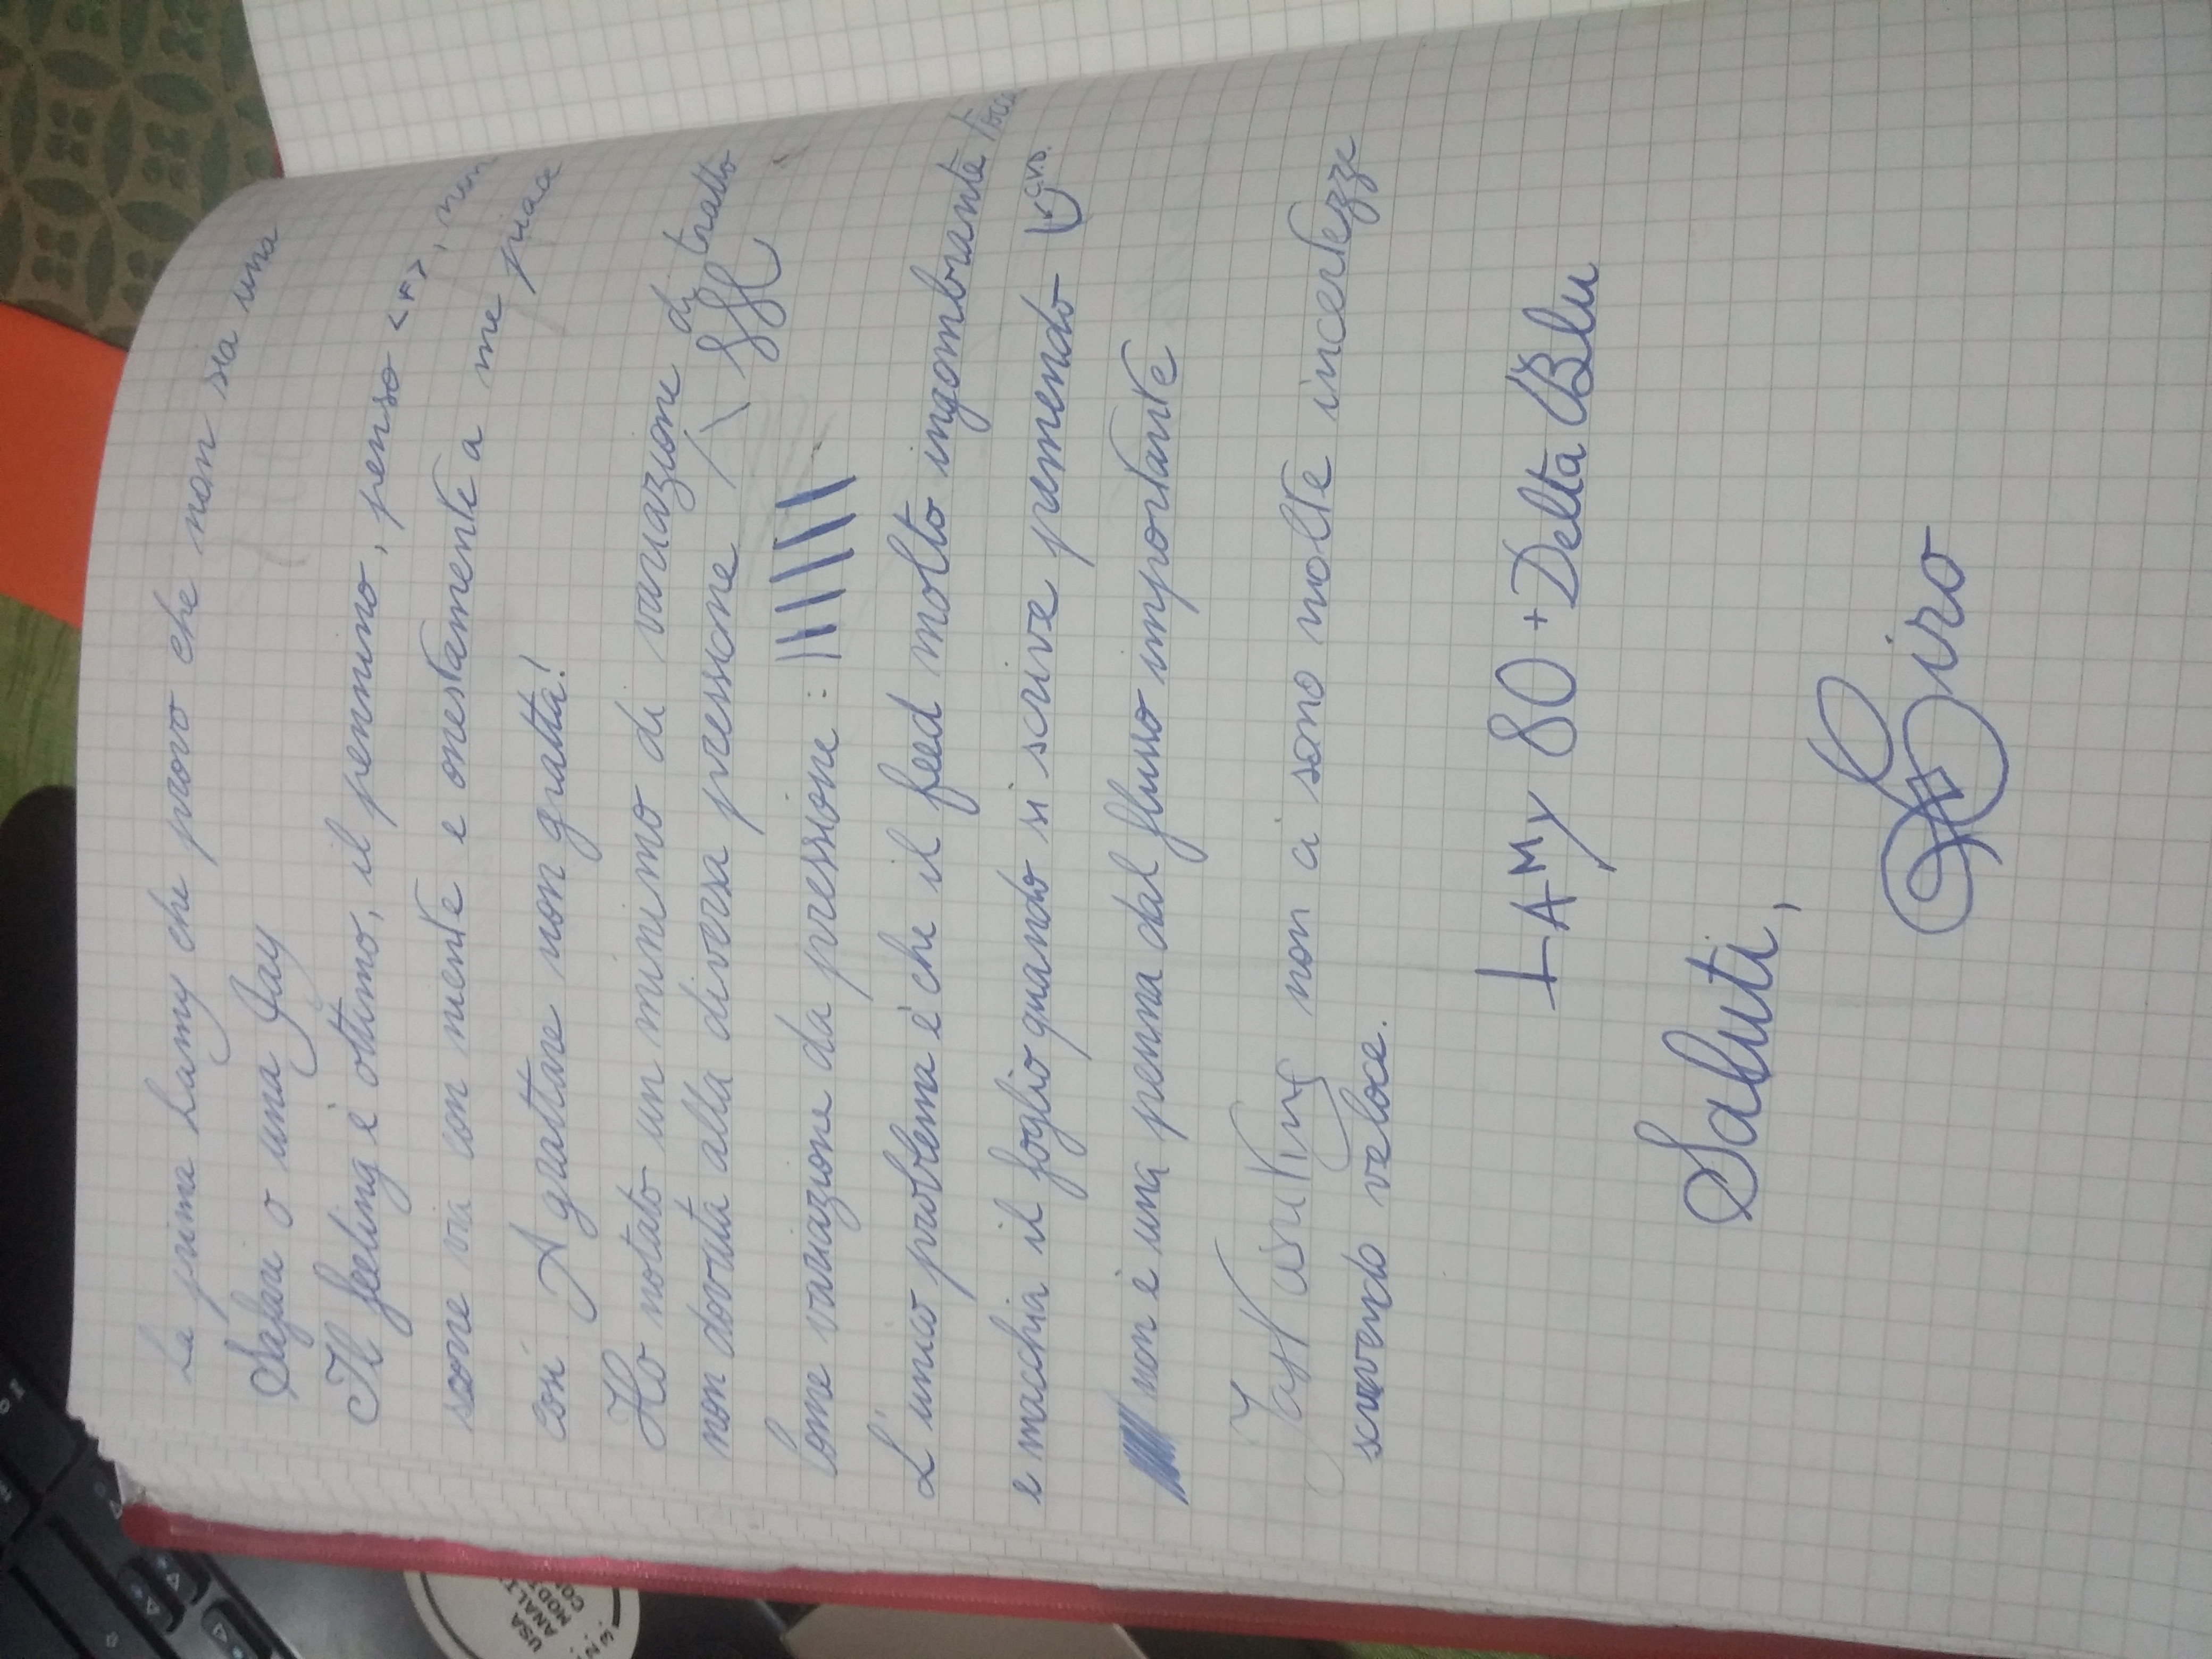 La prima Lamy che provo che non sia una
Safari o una Joy
Il feeling è ottimo, il pennino, penso <F>, non
scorre via con niente e onestamente a me piace
così A grattare non gratta!
Ho notato un minimo di variazione di tratto
non dovuta alla diversa pressione
Come variazione da pressione :
L'unico problema è che il feed molto ingombrante tocca
e macchia il foglio quando si scrive premendo
non è una penna dal flusso importante
Fast writing non ci sono molte incertezze
scrivendo veloce.
LAMY 80 + Delta Blu
Saluti,
Ciro
USA